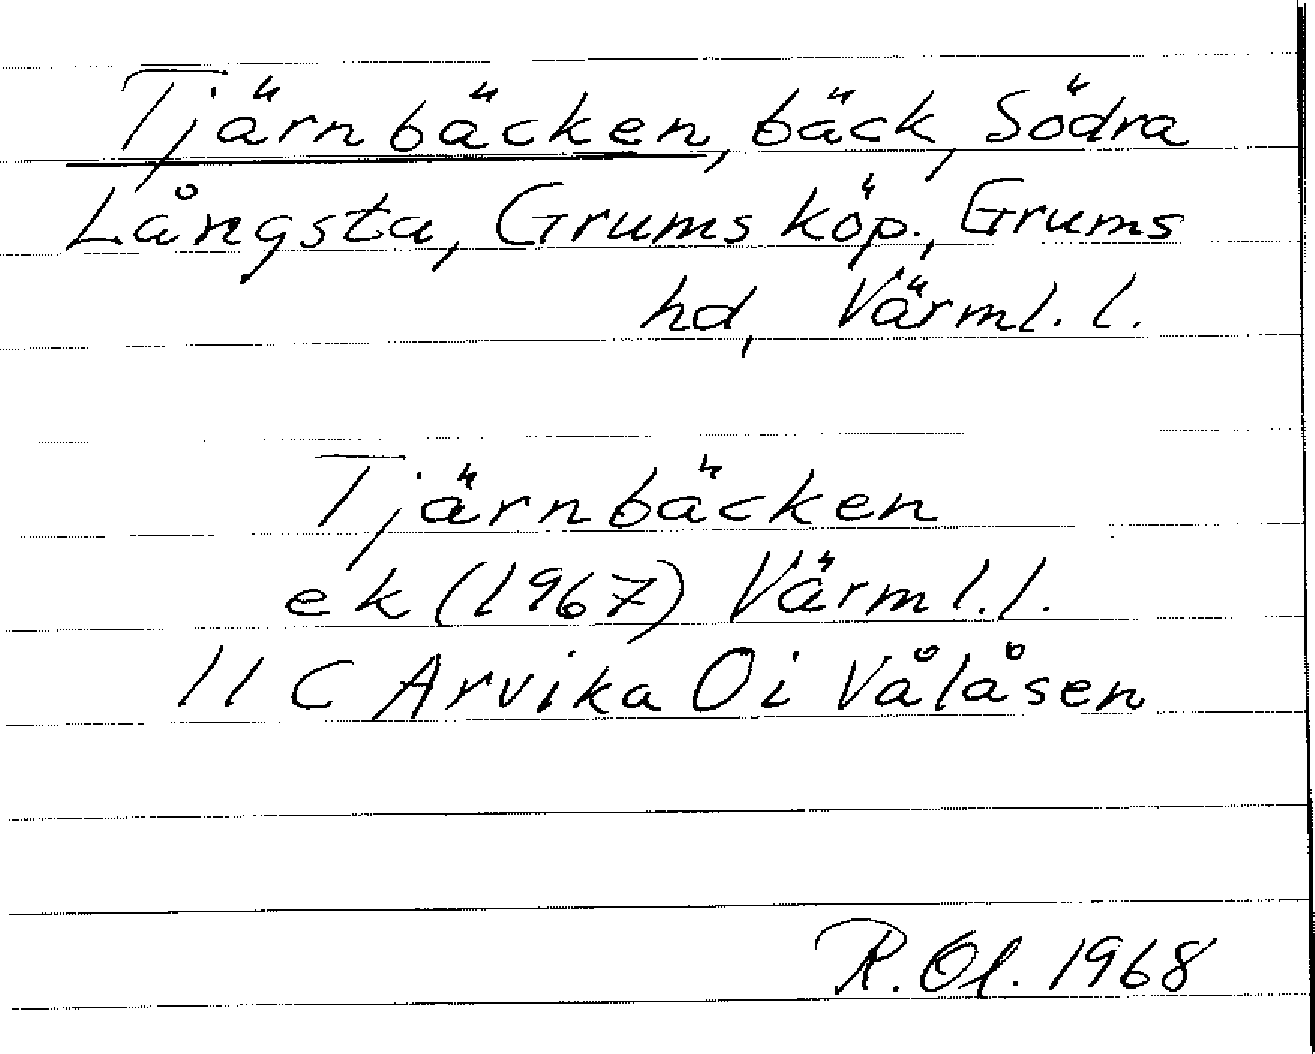 Tjärnbäcken, bäck, Södra
Långsta, Grums köp., Grums
hd, Värml. l.
Tjärnbäcken
ek (1967) Värml. l.
11 C Arvika 0i Vålåsen
R. Ol. 1968